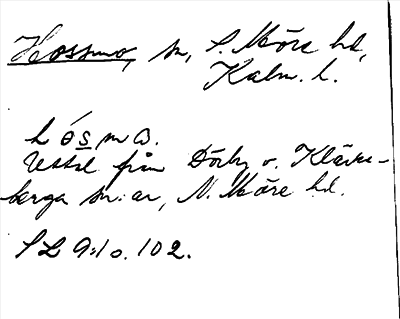 Hossmo, sn, S. Möre hd,
Kalm. l.
Uttal från Dörby o. Kläcke-
berga sn:ar, N. Möre hd.
SL 9:10. 102.